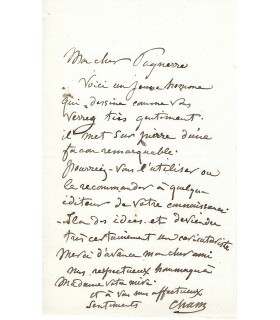 Mon cher Pagnerre
Voici un jeune homme
qui dessine comme vous
verrez très gentiment.
il met sur pierre d'une
façon remarquable.
pourriez-vous l'utiliser ou
le recommander à quelque
éditeur de votre connaissance.
Il a des idées et deviendra
très certainement un caricaturiste
Merci d'avance mon cher ami
mes respectueux hommages à
Madame votre mère
et à vous mes affectueux
sentiments Cham